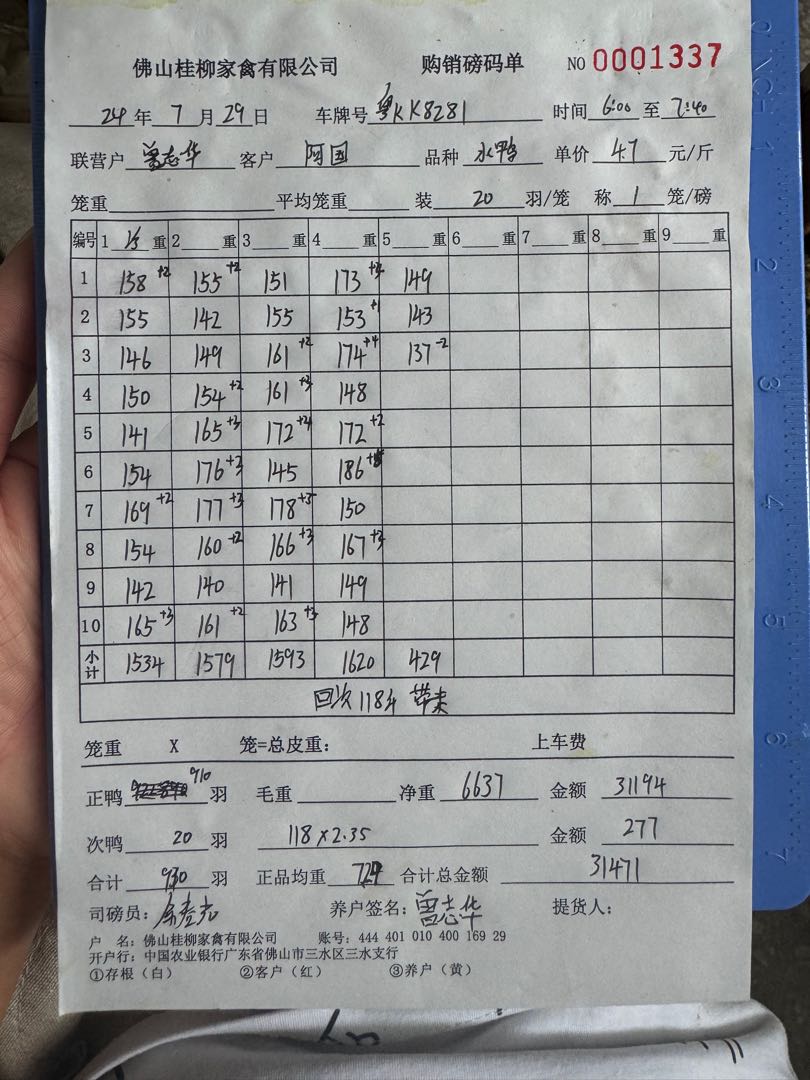 佛山桂柳家禽有限公司 购销磅码单 NO 0001337
24年 7月29日 车牌号 粤KK8281 时间 6:00 至 7:40
联营户 曾志华 客户 阿国 品种 水鸭 单价 4.7 元/斤
笼重 平均笼重 装 20 羽/笼 称 1 笼/磅
编号 1 重 2 重 3 重 4 重 5 重 6 重 7 重 8 重 9 重
1 158+2 155+2 151 173 149
2 155 142 155 153+1 143
3 146 149 161+2 174+4 137-2
4 150 154+2 161+3 148
5 141 165+3 172+4 172+2
6 154 176+3 145 186
7 169+2 177+3 178+5 150
8 154 160+2 166+3 167+3
9 142 140 141 149
10 165+3 161+2 163+3 148
小计 1534 1579 1593 1620 429
回次118斤 带走
笼重 X 笼=总皮重： 上车费
正鸭 910 羽 毛重 净重 6637 金额 31194
次鸭 20 羽 118×2.35 金额 277
合计 930 羽 正品均重 合计总金额 31471
司磅员： 养户签名：曾志华 提货人：
户 名：佛山桂柳家禽有限公司 账号：444 401 010 400 169 29
开户行：中国农业银行广东省佛山市三水区三水支行
①存根（白） ②客户（红） ③养户（黄）
1
2
3
4
5
6
7